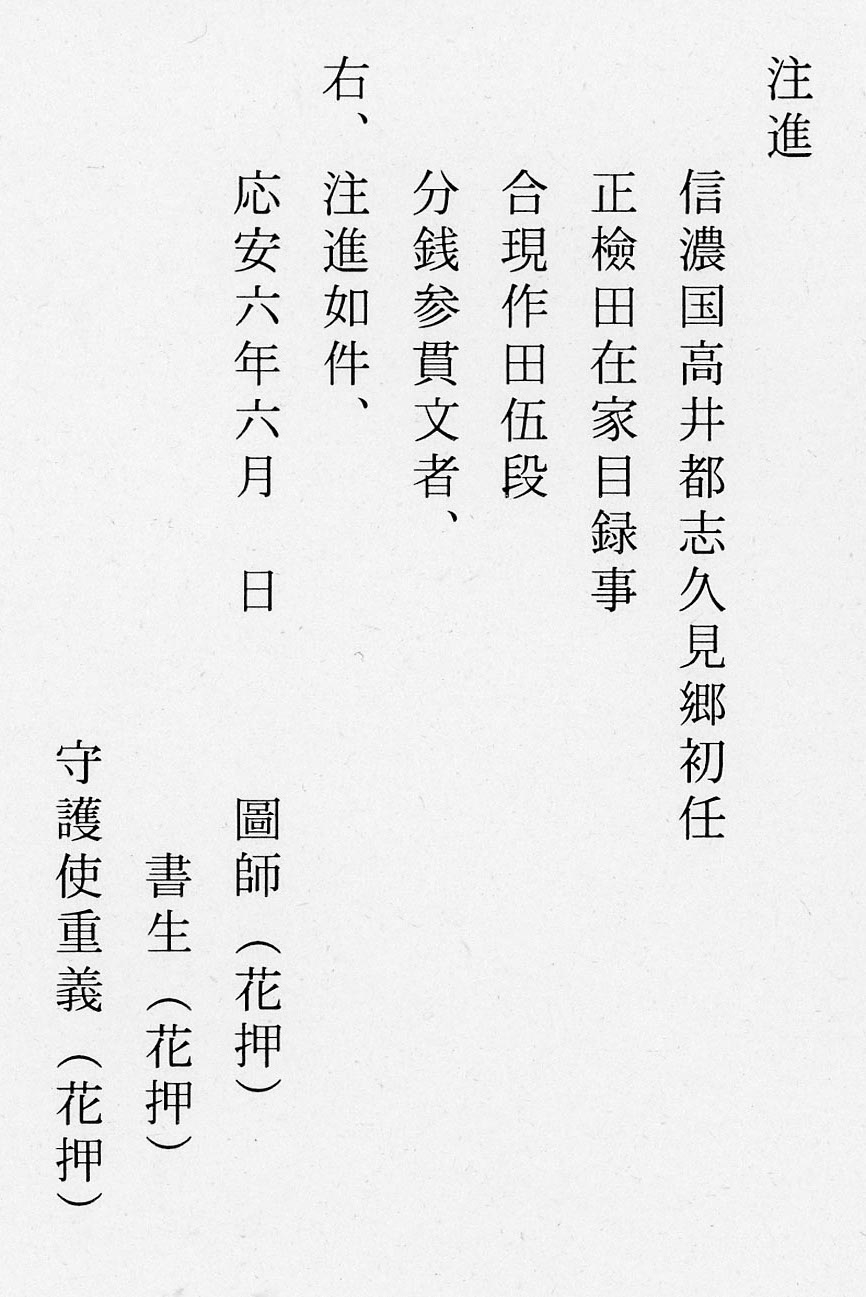 注進
信濃国高井都志久見郷初任
正檢田在家目録事
合現作田伍段
分銭参貫文者、
右、注進如件、
応安六年六月　日　　　圖師（花押）
書生（花押）
守護使重義（花押）